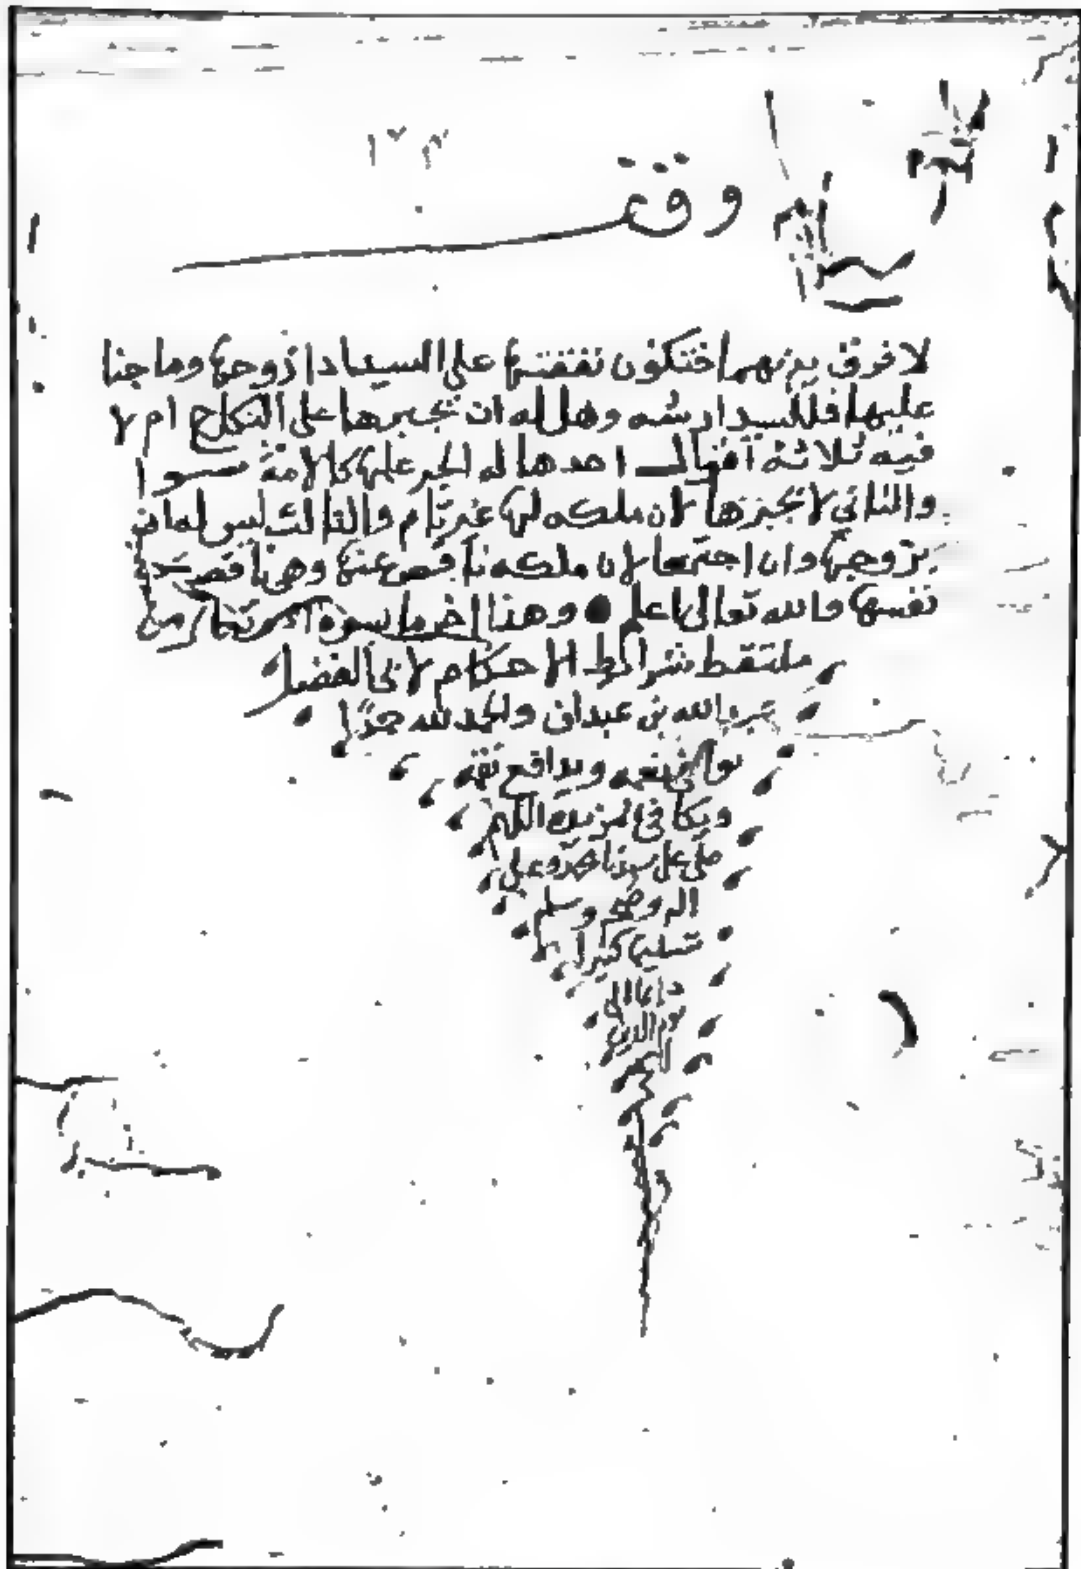 ١٢٣
وقف
لا فرق بينهما فتكون نفقتها على السيد اذا زوجها وما جنا
عليها فللسيد ارشه وهل له ان يجبرها على النكاح ام لا
فيه ثلاثة اقوال احدها له الجبر عليها كالامة سوا
والثاني لا يجبرها لان ملكه لها غير تام والثالث ليس له ان
يزوجها وان اجتمعا لان ملكه ناقص عنها وهي ناقصة
نفسها والله تعالى اعلم وهذا اخر ما يسره الله تعالى من
ملتقط شرائط الاحكام لابي الفضل
عبد الله بن عبدان والحمد لله حمدًا
يوافي نعمه ويدافع نقمه
ويكافي مزيده اللهم
صلي على سيدنا محمد وعلى
اله وصحبه وسلم
تسليما كثيرا
دائما الى
يوم الدين